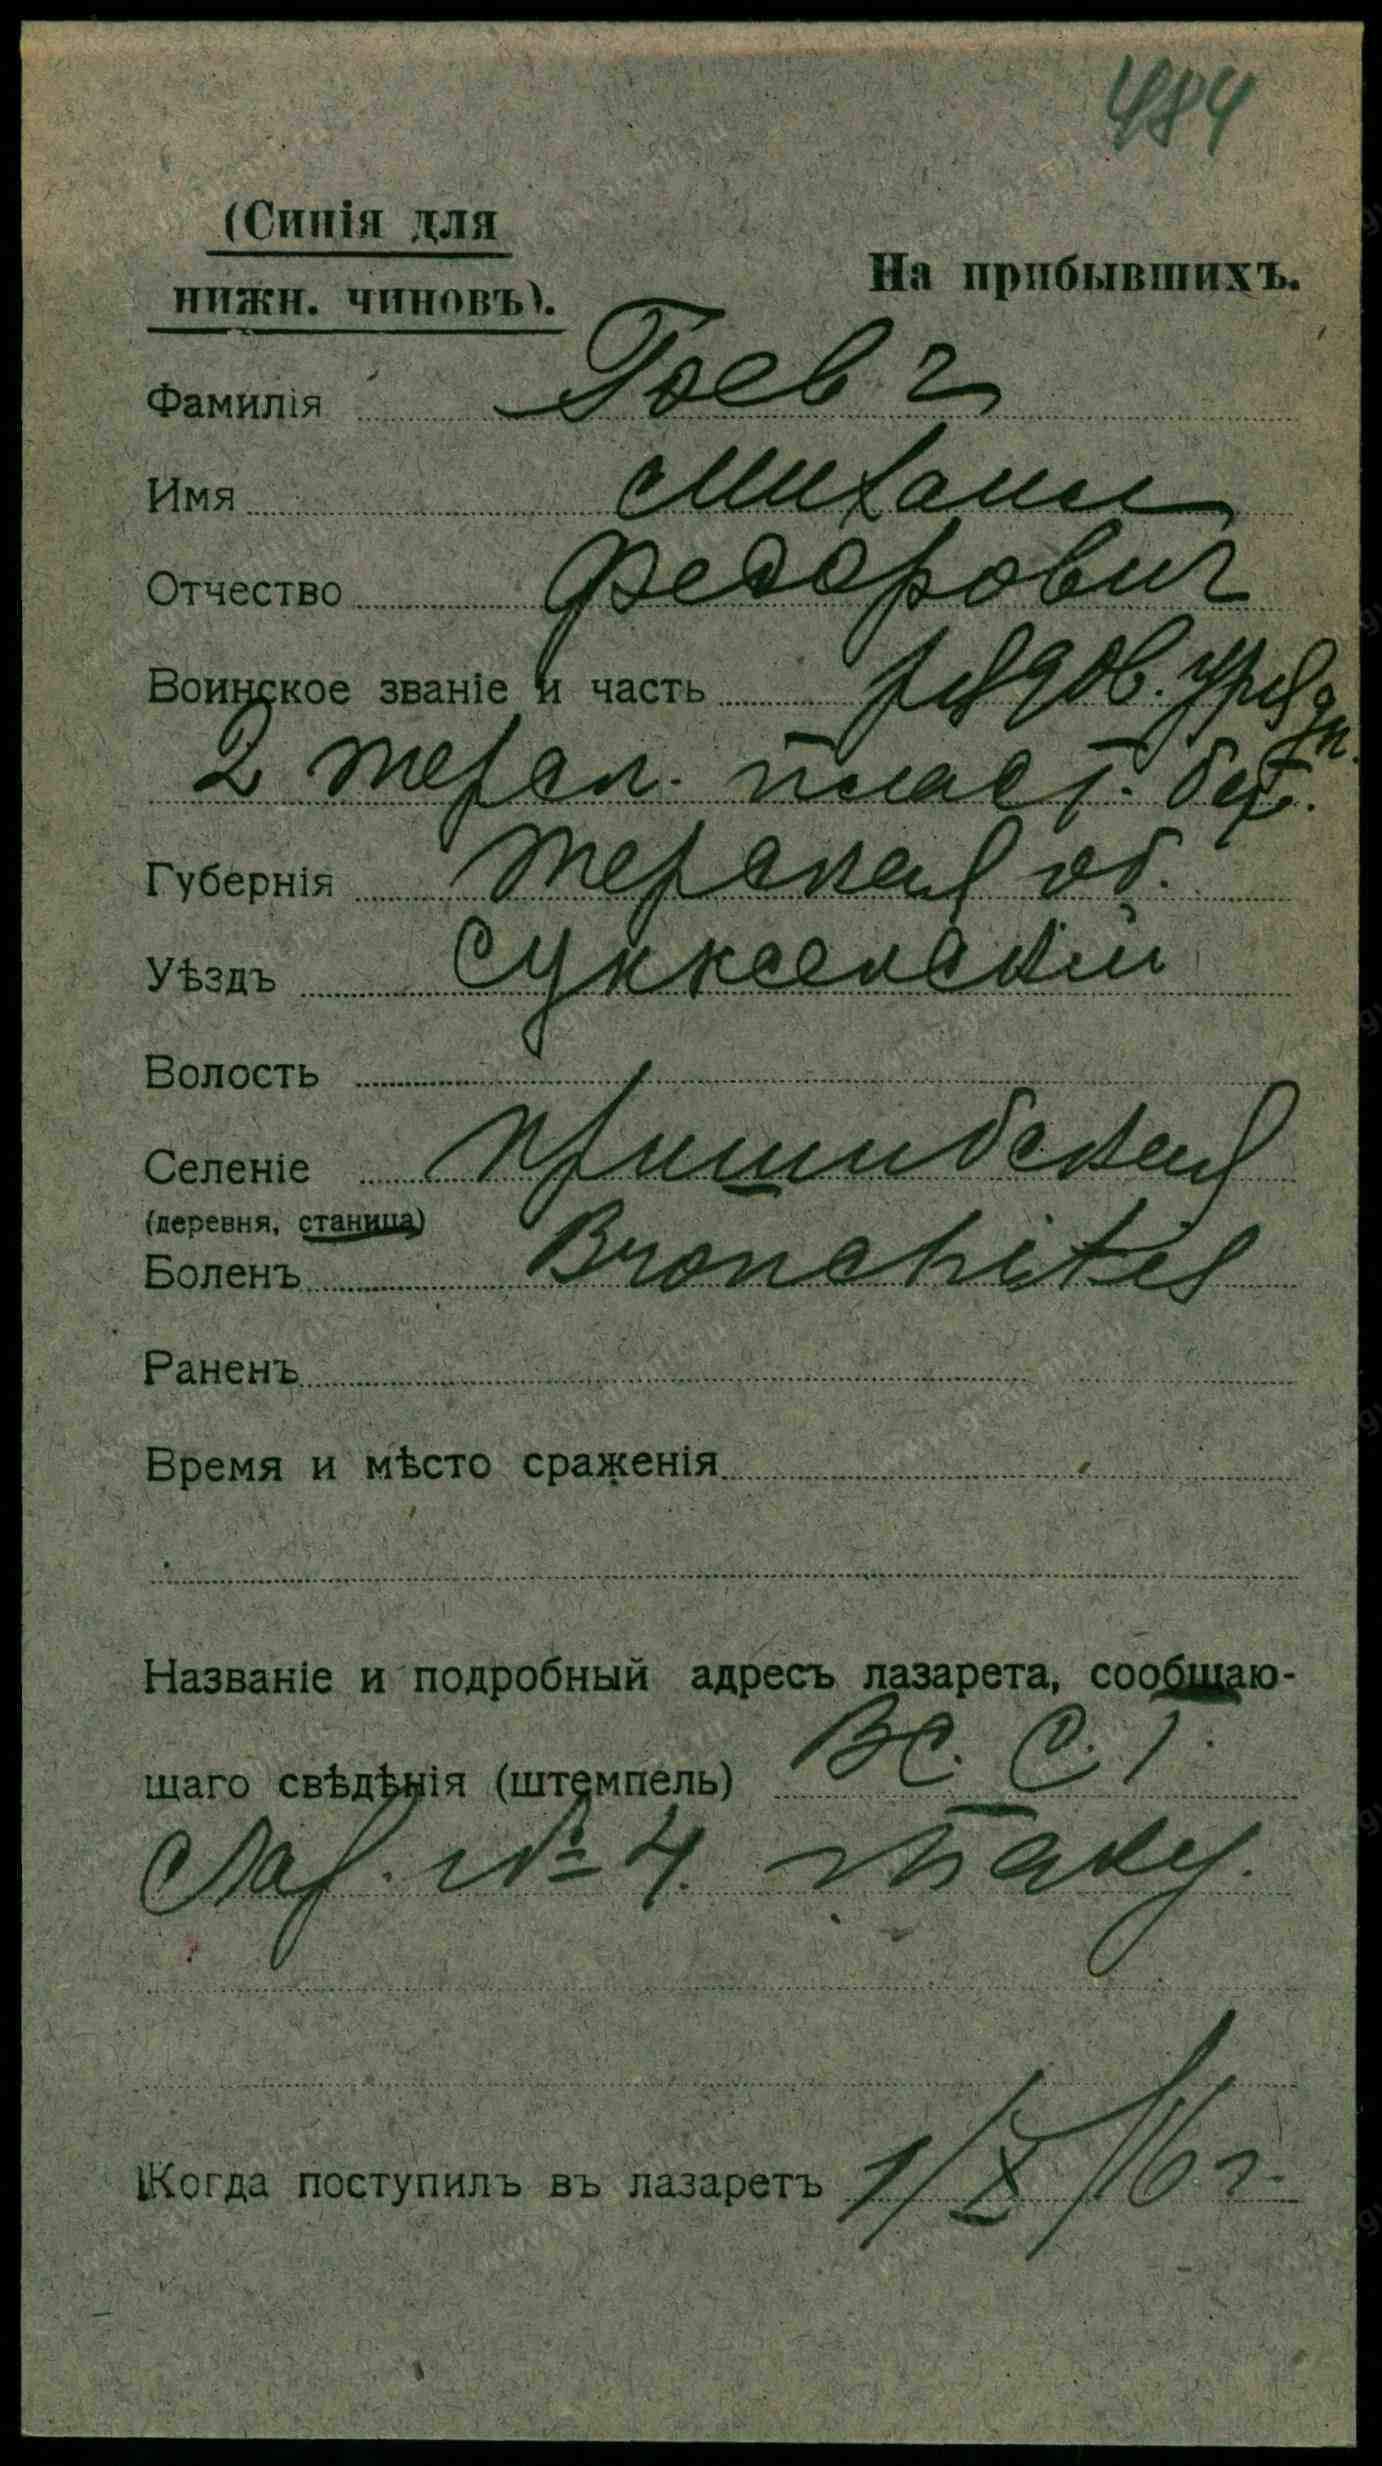 484
(Синія для
нижн. чиновъ).
На прибывшихъ.
Фамилія Гоевъ
Имя Михаил
Отчество Федорович
Воинское званіе и часть рядов. урядн.
2 терск. пласт. бат.
Губернія Терская об.
Уѣздъ Сунженский
Волость
Селеніе Пришибская
(деревня, станица)
Боленъ Bronchitis
Раненъ
Время и мѣсто сраженія
Названіе и подробный адресъ лазарета, сообщаю-
щаго свѣдѣнія (штемпель) В С. С. Г.
Лаз. № 4. Баку.
Когда поступилъ въ лазаретъ 1/X/16 г.